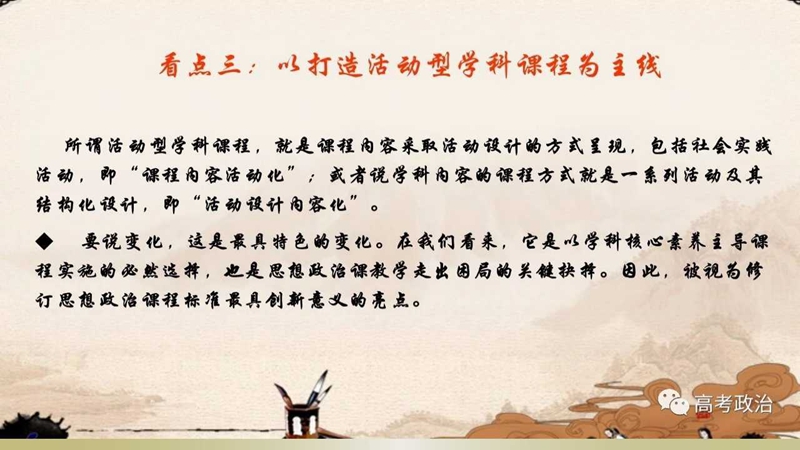 看点三：以打造活动型学科课程为主线
所谓活动型学科课程，就是课程内容采取活动设计的方式呈现，包括社会实践
活动，即“课程内容活动化”；或者说学科内容的课程方式就是一系列活动及其
结构化设计，即“活动设计内容化”。
◆ 要说变化，这是最具特色的变化。在我们看来，它是以学科核心素养主导课
程实施的必然选择，也是思想政治课教学走出困局的关键抉择。因此，被视为修
订思想政治课程标准最具创新意义的亮点。
高考政治